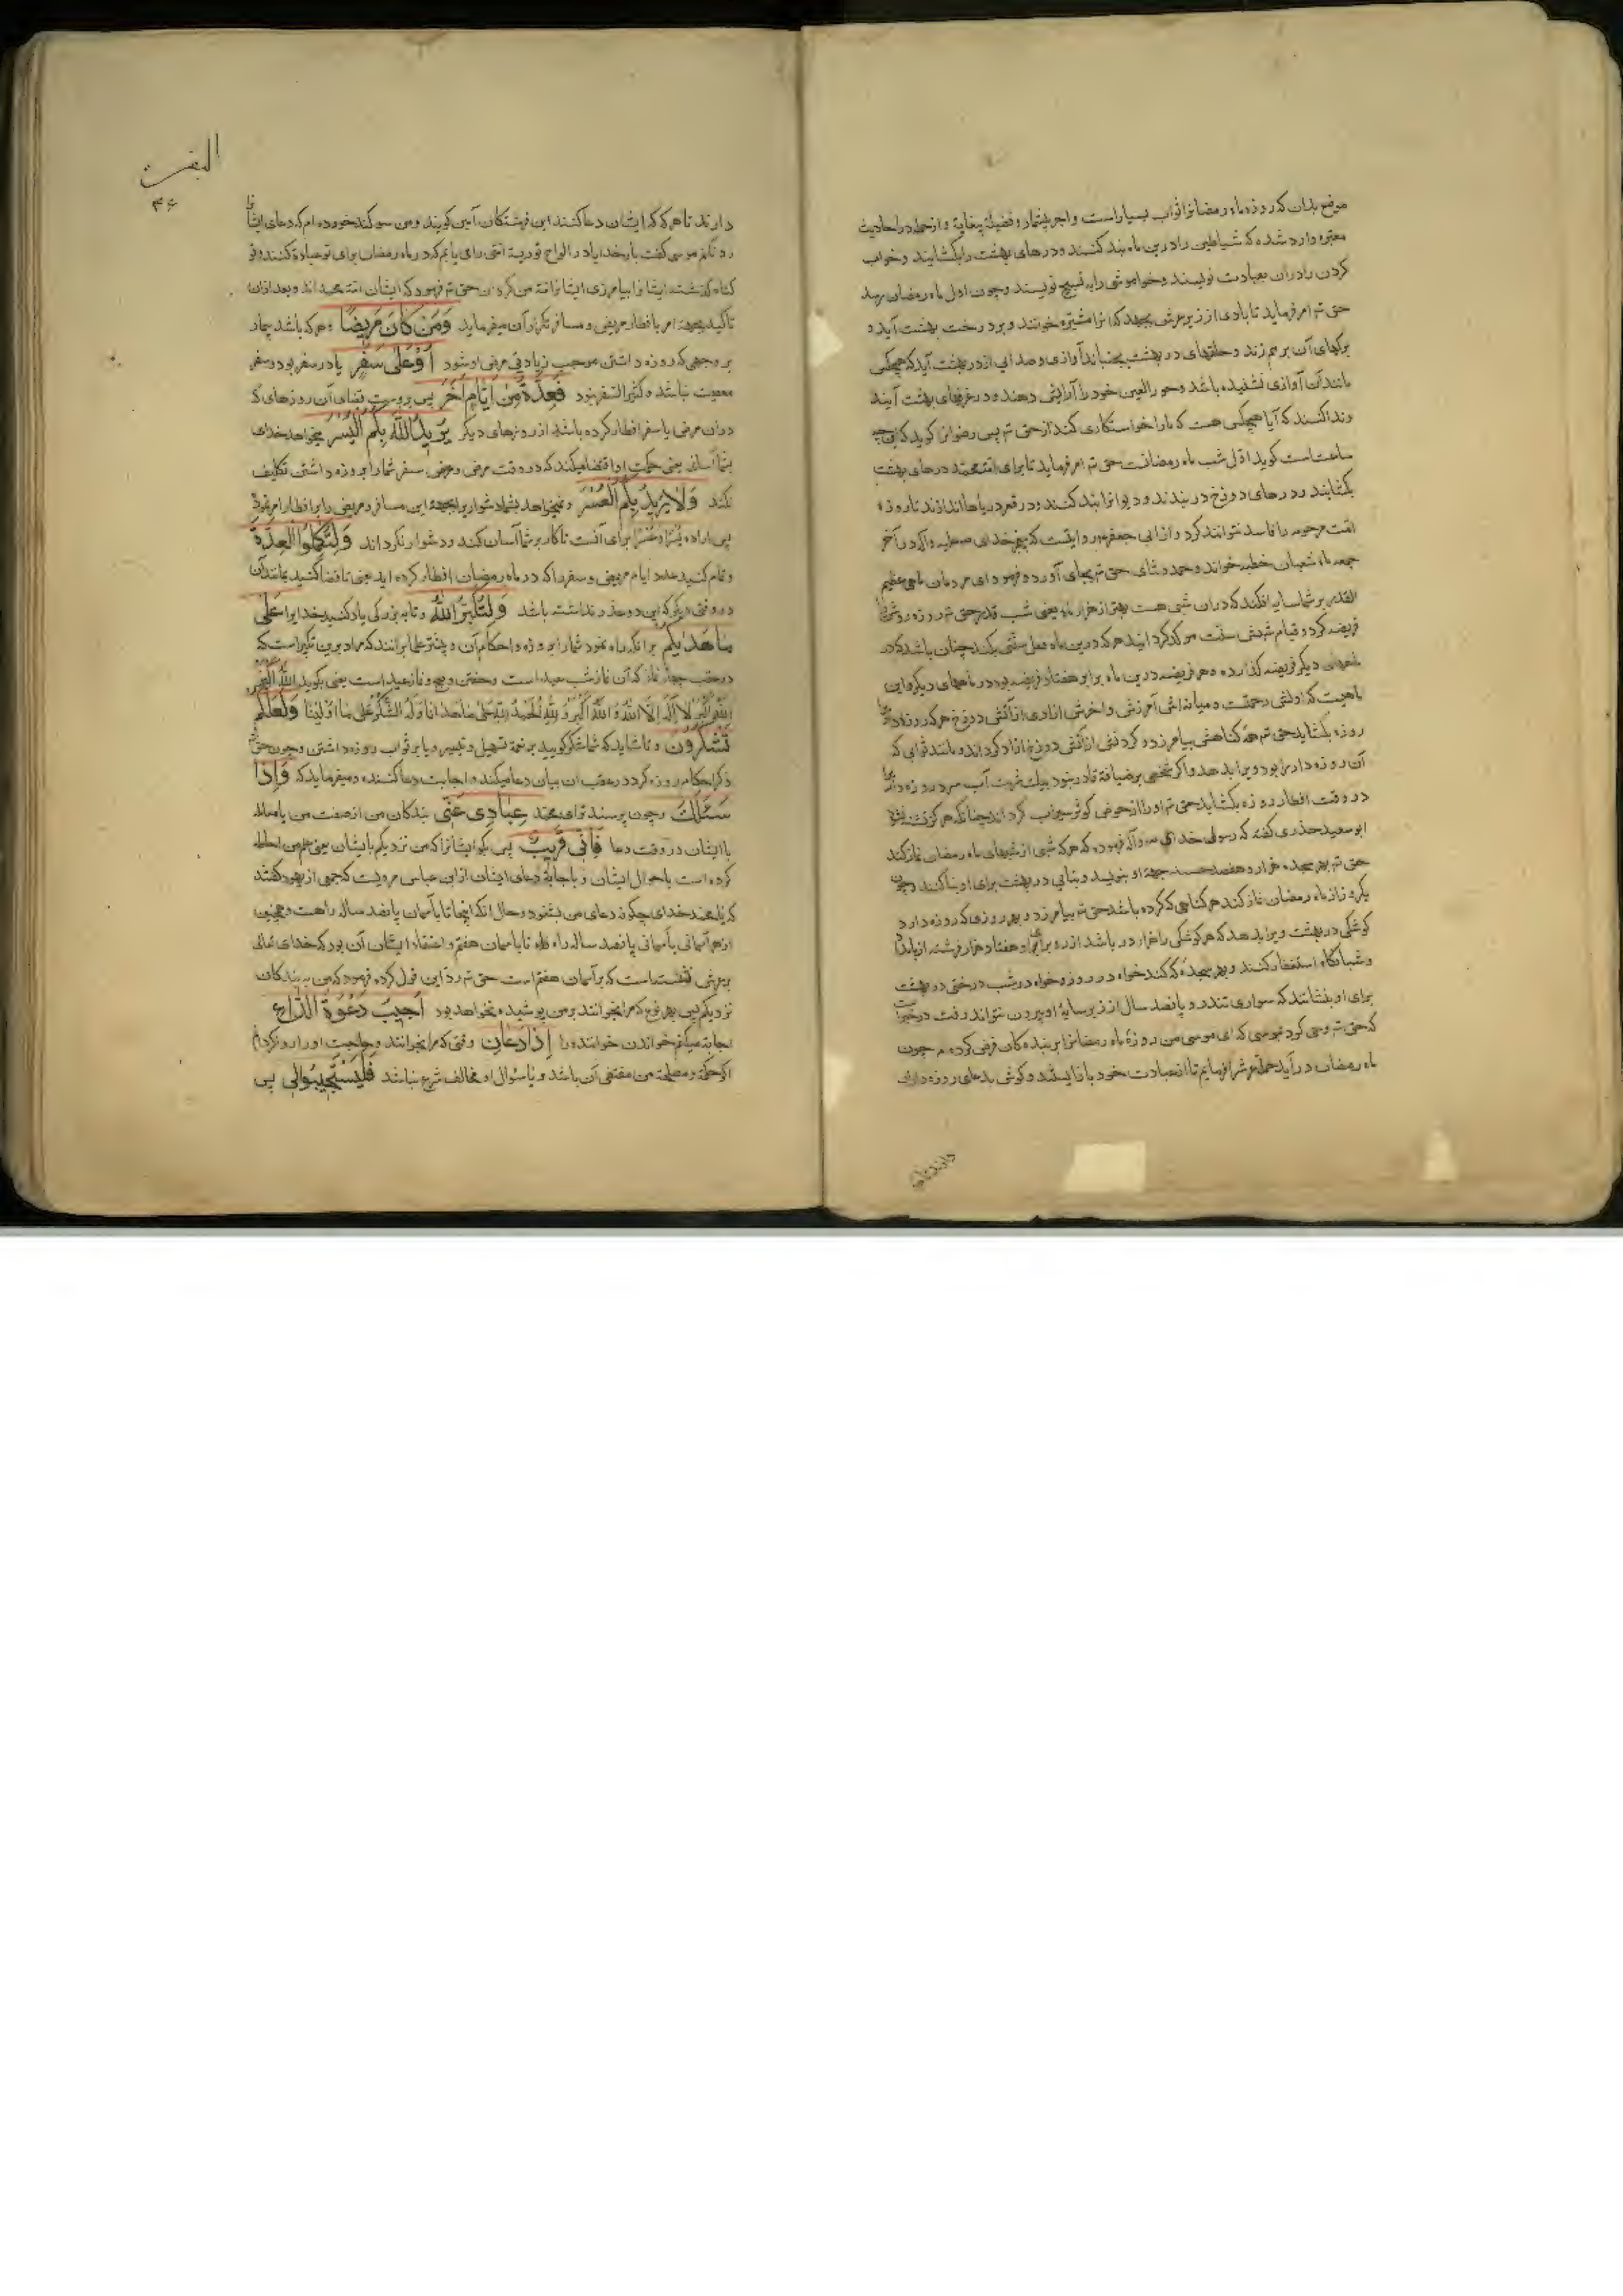 مرضع بدان که روزه ماه رمضانرا ثواب بسیار است و اجر بیشمار و فضیلة بیغایة و از جمله در احادیث
معتبره وارد شده که شیاطین را درین ماه بند کنند و درهای بهشت را بکشایند و خواب
کردن را دران بعبادت نویسند و خواموشی را به تسبیح نویسند و چون اول ماه رمضان رسد
حق تع امر فرماید تا بادی از زیر عرش بجهد که انرا مثیره خوانند و برد رخت بهشت آید و
برکهای آن برهم زند و حلقهای در بهشت بجنباند آوازی و صدایی از در بهشت آید که هیچکس
مانند آن آوازی نشنیده باشد و حور العین خود را آرایش دهند و در غرفهای بهشت آیند
و ندا کنند که آیا هیچکس هست که ما را خواستکاری کند از حق تع پس رضوانرا کوید که این چه
ساعت است کوید اول شب ماه رمضانست حق تع امر فرماید تا برای امت محمد درهای بهشت
بکشایند و درهای دوزخ دربندند و دیوانرا بند کنند و در قعر دریاها اندازند تا روزه
امت مرحومه را فاسد نتوانند کرد و از ابی جعفر روایتست که پیغمبر خدای صلی علیه و آله در آخر
جمعه ماه شعبان خطبه خواند و حمد و ثنای حق تع بجای آورد و فرمود ای مردمان ماهی عظیم
القدر بر شما سایه افکند که دران شبی هست بهتر از هزار ماه یعنی شب قدر حق تع روزه روزش
فریضه کرد و قیام شبش سنت موکد کردانید هر که درین ماه فعل سنتی بکند چنان باشد که در
ماههای دیکر فریضه کذارده و هر فریضه درین ماه برابر هفتاد فریضه بود در ماههای دیکر و این
ماهیست که اولش رحمتست و میانه اش آمرزش و اخرش ازادی از آتش دوزخ هر که روزه داری
روزه بکشاید حق تع همه کناهش بیامرزد و کردنش از آتش دوزخ ازاد کرداند و مانند ثوابی که
آن روزه دار را بود ویرا بدهد و اکر شخصی بر ضیافة قادر نبود بیک شربت آب سرد روزه دار
در وقت افطار روزه بکشاید حق تع او را از حوض کوثر سیراب کرداند چنانکه هرکز تشنه نشود
ابو سعید حذری کفته که رسول خدای ص و آله فرموده که هر که شبی از شبهای ماه رمضان نماز کند
حق تع بهر سجده هزار و هفصد حسنه جهة او بنویسد و بنایی در بهشت برای او بنا کنند و چون
یکروز از ماه رمضان نماز کند هر کناهی که کرده باشد حق تع بیامرزد و بهر روزی که روزه دارد
کوشکی در بهشت ویرا بدهد که هر کوشکی را هزار در باشد از زر برای او هفتاد هزار فرشته از بامداد
و شبانکاه استغفار کنند و بهر سجده که کند خواه در روز و خواه در شب درختی در بهشت
برای او بنشانند که سواری تندرو پانصد سال از زیر سایهٔ او بیرون نتواند رفت در خبر است
که حق تع وحی کرد بموسی که ای موسی من روزهٔ ماه رمضانرا بر بنده کان فرض کرده ام چون
ماه رمضان درآید حملهٔ عرش را فرمایم تا از عبادت خود باز ایستند و کوش بدعای روزه داران
دارند تا
البقرة
۴۶
دارند تا هر که که ایشان دعا کنند این فرشتکان آمین کویند و من سوکند خورده ام که دعای ایشان
رد نکنم موسی کفت بار خدایا در الواح توریة امتی را می یابم که در ماه رمضان برای تو عبادة کنند و تو
کناه کذشته ایشانرا بیامرزی ایشانرا امة من کردان حق تع فرمود که ایشان امة محمد اند و بعد ازان
تاکید بجهة امر بافطار مریض و مسافر تکرار آن میفرماید وَمَنْ كَانَ مَرِيضًا و هر که باشد بیمار
بر وجهی که روزه داشتن موجب زیادتی مرض او شود اَوْ عَلٰى سَفَرٍ یا در سفر بود و سفر
معصیت نباشد و کثیر السفر نبود فَعِدَّةٌ مِنْ اَيَّامٍ اُخَرَ پس بروست قضای آن روزهای که
دران مرض یا سفر افطار کرده باشد از روزهای دیکر يُرِيدُ اللّٰهُ بِكُمُ الْيُسْرَ میخواهد خدای
بشما آسانی یعنی حکمت او اقتضا میکند که در وقت مرض و سفر شما را بروزه داشتن تکلیف
نکند وَلَا يُرِيدُ بِكُمُ الْعُسْرَ و نمیخواهد بشما دشواری و بجهة این مسافر و مریض را بر افطار امر فرمود
پس اراده یسر و عسر برای آنست تا کار بر شما آسان کند و دشوار نکرداند وَلِتُكْمِلُوا الْعِدَّةَ
و تمام کنید عدد ایام مریض و سفر را که در ماه رمضان افطار کرده اید یعنی تا قضا کنید بمانند آن
در وقتی دیکر که این دو عذر نداشته باشد وَلِتُكَبِّرُوا اللّٰهَ و تا به بزرکی یاد کنید خدایرا عَلٰى
مَا هَدٰيكُمْ بر انکه راه نمود شما را بروزه و احکام آن و بیشتر علما برانند که مراد برین تکبیر است که
در عقب چهار نماز که آن نماز شب عید است و خفتن و صبح و نماز عید است یعنی بکویید اللّٰهُ اَكْبَرُ
اَللّٰهُ اَكْبَرُ لَا اِلٰهَ اِلَّا اللّٰهُ وَ اللّٰهُ اَكْبَرُ وَ لِلّٰهِ الْحَمْدُ لِلّٰهِ عَلٰى مَا هَدٰانَا وَلَهُ الشُّكْرُ عَلٰى مَا اَوْلٰينَا وَلَعَلَّكُمْ
تَشْكُرُونَ و تا شاید که شما شکر کویید بر نعمة تسهیل و تیسیر و یا بر ثواب روزه داشتن و چون حق تع
ذکر احکام روزه کرد در عقب ان بیان دعا میکند و اجابت دعا کننده و میفرماید که وَاِذَا
سَئَلَكَ و چون پرسند ترا ای محمد عِبَادِى عَنِّى بندکان من از صفت من یا معامله
با ایشان در وقت دعا فَاِنِّى قَرِيبٌ پس بکو ایشانرا که من نزدیکم بایشان یعنی علم من احاطه
کرده است باحوال ایشان و باجابة دعای ایشان از ابن عباس مرویست که جمعی از یهود کفتند
که یا محمد خدای چکونه دعای من بشنود و حال انکه اینجا تا بآسمان پانصد ساله راهست و همچنین
از هر آسمانی بآسمانی پانصد ساله راه فلهذا تا باسمان هفتم و اعتقاد ایشان آن بود که خدای تعالی
برعرش نشسته است که بر آسمان هفتم است حق تع رد این قول کرده فرمود که من به بندکان
نزدیکم پس بهر نوع که مرا بخوانند بر من پوشیده نخواهد بود اُجِيبُ دَعْوَةَ الدَّاعِ
اجابة میکنم خواندن خواننده را اِذَا دَعَانِ وقتی که مرا بخوانند و حاجت او را رد نکردانم
اکر حکمة و مصلحة من مقتضی آن باشد و یا سوال او مخالف شرع نباشد فَلْيَسْتَجِيبُوا لِى پس